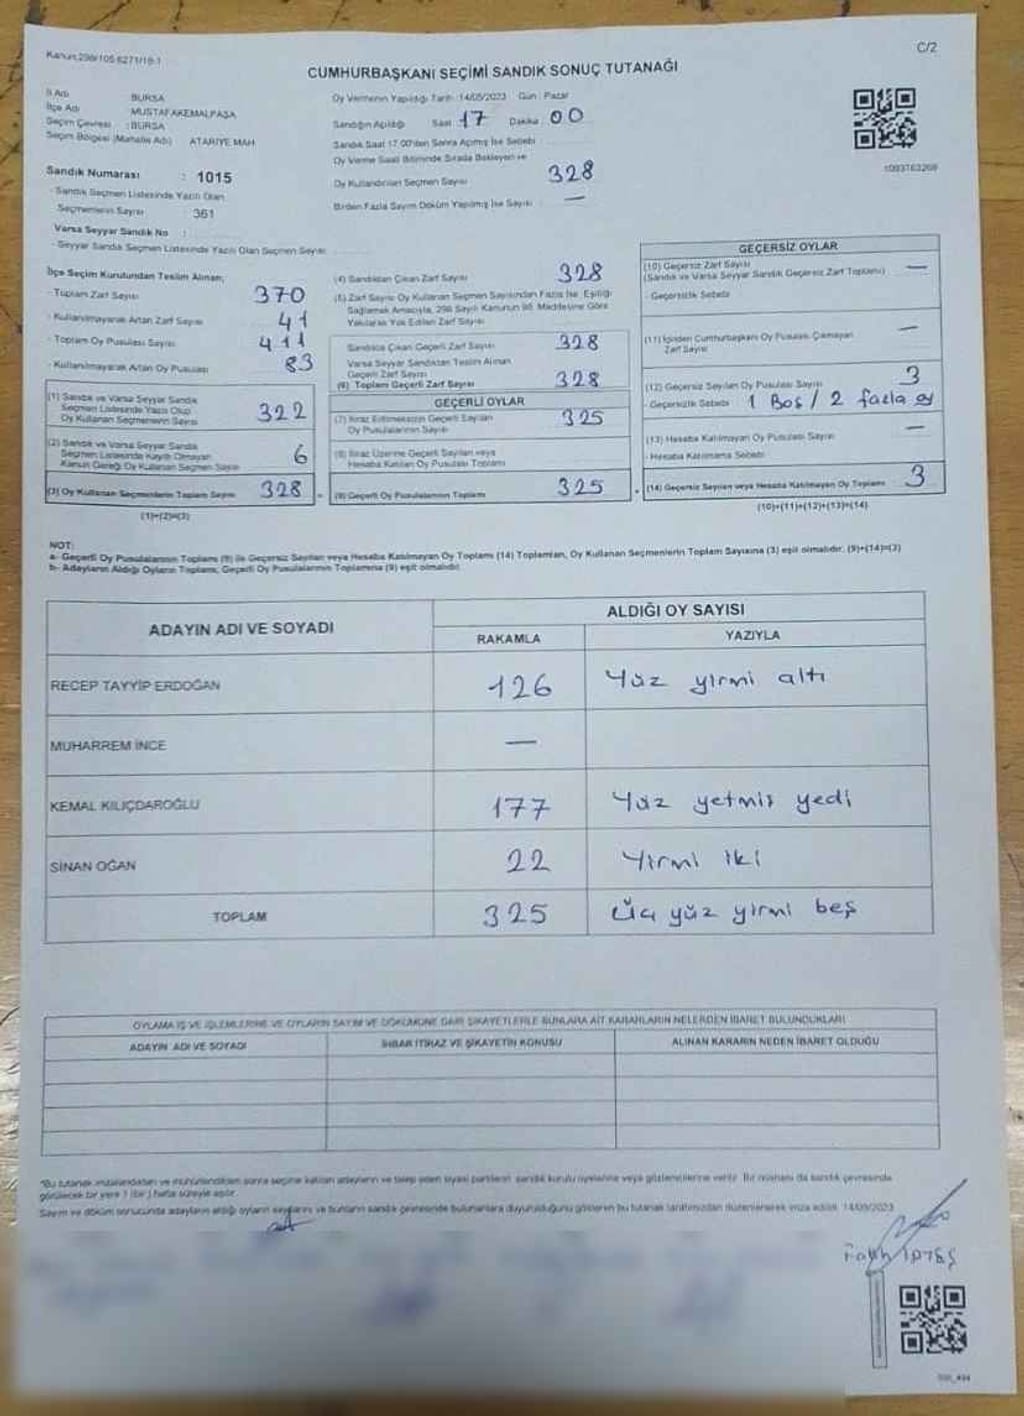 Kanun:298/105 6271/19-1
C/2
CUMHURBAŞKANI SEÇİMİ SANDIK SONUÇ TUTANAĞI
İl Adı BURSA
İlçe Adı MUSTAFAKEMALPAŞA
Seçim Çevresi : BURSA
Seçim Bölgesi (Mahalle Adı) ATARİYE MAH
Sandık Numarası : 1015
- Sandık Seçmen Listesinde Yazılı Olan
Seçmenlerin Sayısı : 361
Varsa Seyyar Sandık No :
- Seyyar Sandık Seçmen Listesinde Yazılı Olan Seçmen Sayısı
Oy Vermenin Yapıldığı Tarih :14/05/2023 Gün : Pazar
Sandığın Açıldığı Saat 17 Dakika 00
Sandık Saat 17.00'den Sonra Açılmış İse Sebebi
Oy Verme Saati Bitiminde Sırada Bekleyen ve
Oy Kullandırılan Seçmen Sayısı 328
Birden Fazla Sayım Döküm Yapılmış İse Sayısı : —
1093763208
İlçe Seçim Kurulundan Teslim Alınan;
- Toplam Zarf Sayısı 370
- Kullanılmayarak Artan Zarf Sayısı 41
- Toplam Oy Pusulası Sayısı 411
- Kullanılmayarak Artan Oy Pusulası 83
(1) Sandık ve Varsa Seyyar Sandık
Seçmen Listesinde Yazılı Olup
Oy Kullanan Seçmenlerin Sayısı 322
(2) Sandık ve Varsa Seyyar Sandık
Seçmen Listesinde Kayıtlı Olmayan
Kanun Gereği Oy Kullanan Seçmen Sayısı 6
(3) Oy Kullanan Seçmenlerin Toplam Sayısı 328
(1)+(2)=(3)
(4) Sandıktan Çıkan Zarf Sayısı 328
(5) Zarf Sayısı Oy Kullanan Seçmen Sayısından Fazla İse, Eşitliği
Sağlamak Amacıyla, 298 Sayılı Kanunun 98. Maddesine Göre
Yakılarak Yok Edilen Zarf Sayısı
Sandıkta Çıkan Geçerli Zarf Sayısı 328
Varsa Seyyar Sandıktan Teslim Alınan
Geçerli Zarf Sayısı
(6) Toplam Geçerli Zarf Sayısı 328
GEÇERLİ OYLAR
(7) İtiraz Edilmeksizin Geçerli Sayılan
Oy Pusulalarının Sayısı 325
(8) İtiraz Üzerine Geçerli Sayılan veya
Hesaba Katılan Oy Pusulası Toplamı
(9) Geçerli Oy Pusulalarının Toplamı 325
GEÇERSİZ OYLAR
(10) Geçersiz Zarf Sayısı —
(Sandık ve Varsa Seyyar Sandık Geçersiz Zarf Toplamı)
- Geçersizlik Sebebi
(11) İçinden Cumhurbaşkanı Oy Pusulası Çıkmayan —
Zarf Sayısı
(12) Geçersiz Sayılan Oy Pusulası Sayısı 3
- Geçersizlik Sebebi 1 Boş / 2 fazla oy
(13) Hesaba Katılmayan Oy Pusulası Sayısı —
- Hesaba Katılmama Sebebi
(14) Geçersiz Sayılan veya Hesaba Katılmayan Oy Toplamı 3
(10)+(11)+(12)+(13)=(14)
NOT:
a- Geçerli Oy Pusulalarının Toplamı (9) ile Geçersiz Sayılan veya Hesaba Katılmayan Oy Toplamı (14) Toplamları, Oy Kullanan Seçmenlerin Toplam Sayısına (3) eşit olmalıdır. (9)+(14)=(3)
b- Adayların Aldığı Oyların Toplamı, Geçerli Oy Pusulalarının Toplamına (9) eşit olmalıdır
ADAYIN ADI VE SOYADI
ALDIĞI OY SAYISI
RAKAMLA YAZIYLA
RECEP TAYYİP ERDOĞAN 126 Yüz yirmi altı
MUHARREM İNCE —
KEMAL KILIÇDAROĞLU 177 Yüz yetmiş yedi
SİNAN OĞAN 22 Yirmi iki
TOPLAM 325 Üç yüz yirmi beş
OYLAMA İŞ VE İŞLEMLERİNE VE OYLARIN SAYIM VE DÖKÜMÜNE DAİR ŞİKAYETLERLE BUNLARA AİT KARARLARIN NELERDEN İBARET BULUNDUKLARI
ADAYIN ADI VE SOYADI İHBAR İTİRAZ VE ŞİKAYETİN KONUSU ALINAN KARARIN NEDEN İBARET OLDUĞU
*Bu tutanak imzalandıktan ve mühürlendikten sonra seçime katılan adayların ve talep eden siyasi partilerin sandık kurulu üyelerine veya gözlemcilerine verilir. Bir nüshası da sandık çevresinde
görülecek bir yere 1 (bir ) hafta süreyle asılır.
Sayım ve döküm sonucunda adayların aldığı oyların sayılarını ve bunların sandık çevresinde bulunanlara duyurulduğunu gösteren bu tutanak tarafımızdan düzenlenerek imza edildi. 14/05/2023